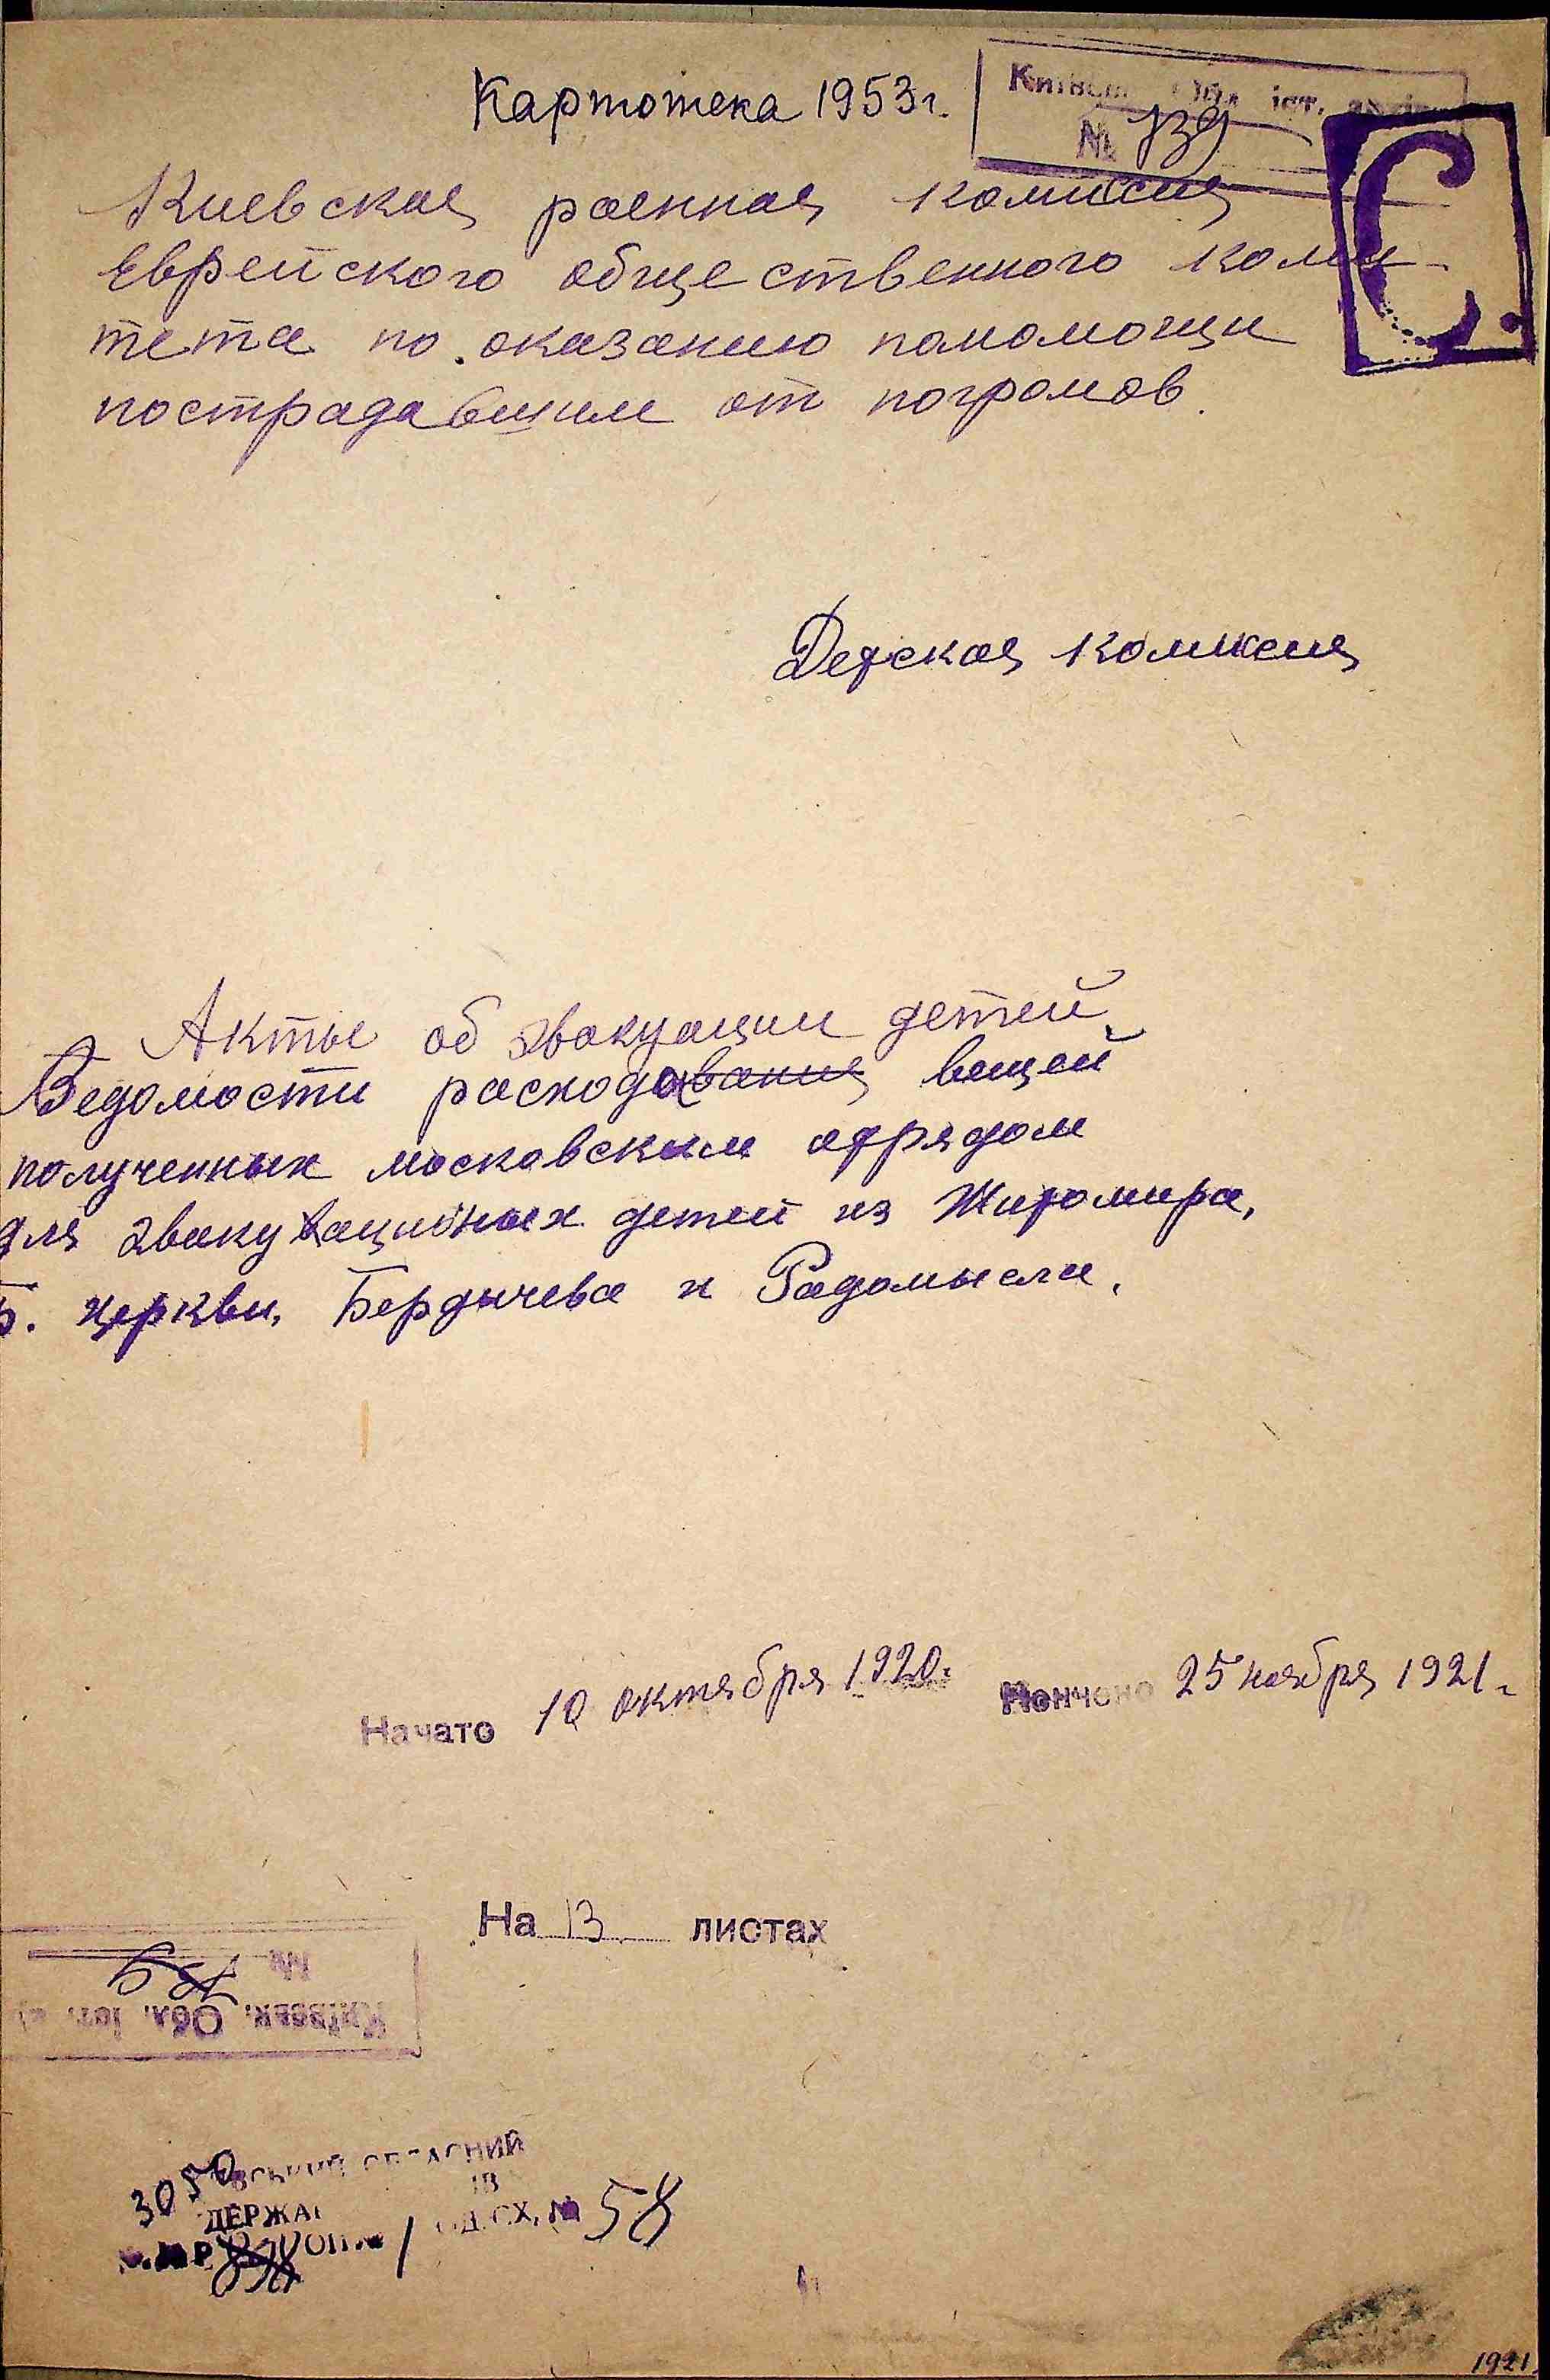 Картотека 1953 г.
Київськ. Обл. іст. архів
№ 739
С.
Киевская раенная комиссия
Еврейского общественного коми-
тета по оказанию помомощи
пострадавшим от погромов.
Детская комиссия
Акты об эвакуации детей
Ведомости расходования вещей
полученных московским отрядом
для эвакувационых детей из Житомира,
Б. церкви, Бердичева и Радомысля.
Начато 10 октября 1920 г. Кончено 25 ноября 1921 г.
На 13 листах
№
Київськ. Обл. іст.
3050
ОБЛАСНИЙ
ДЕРЖА
Р ОП. № 1 ОД. СХ. № 58
1921